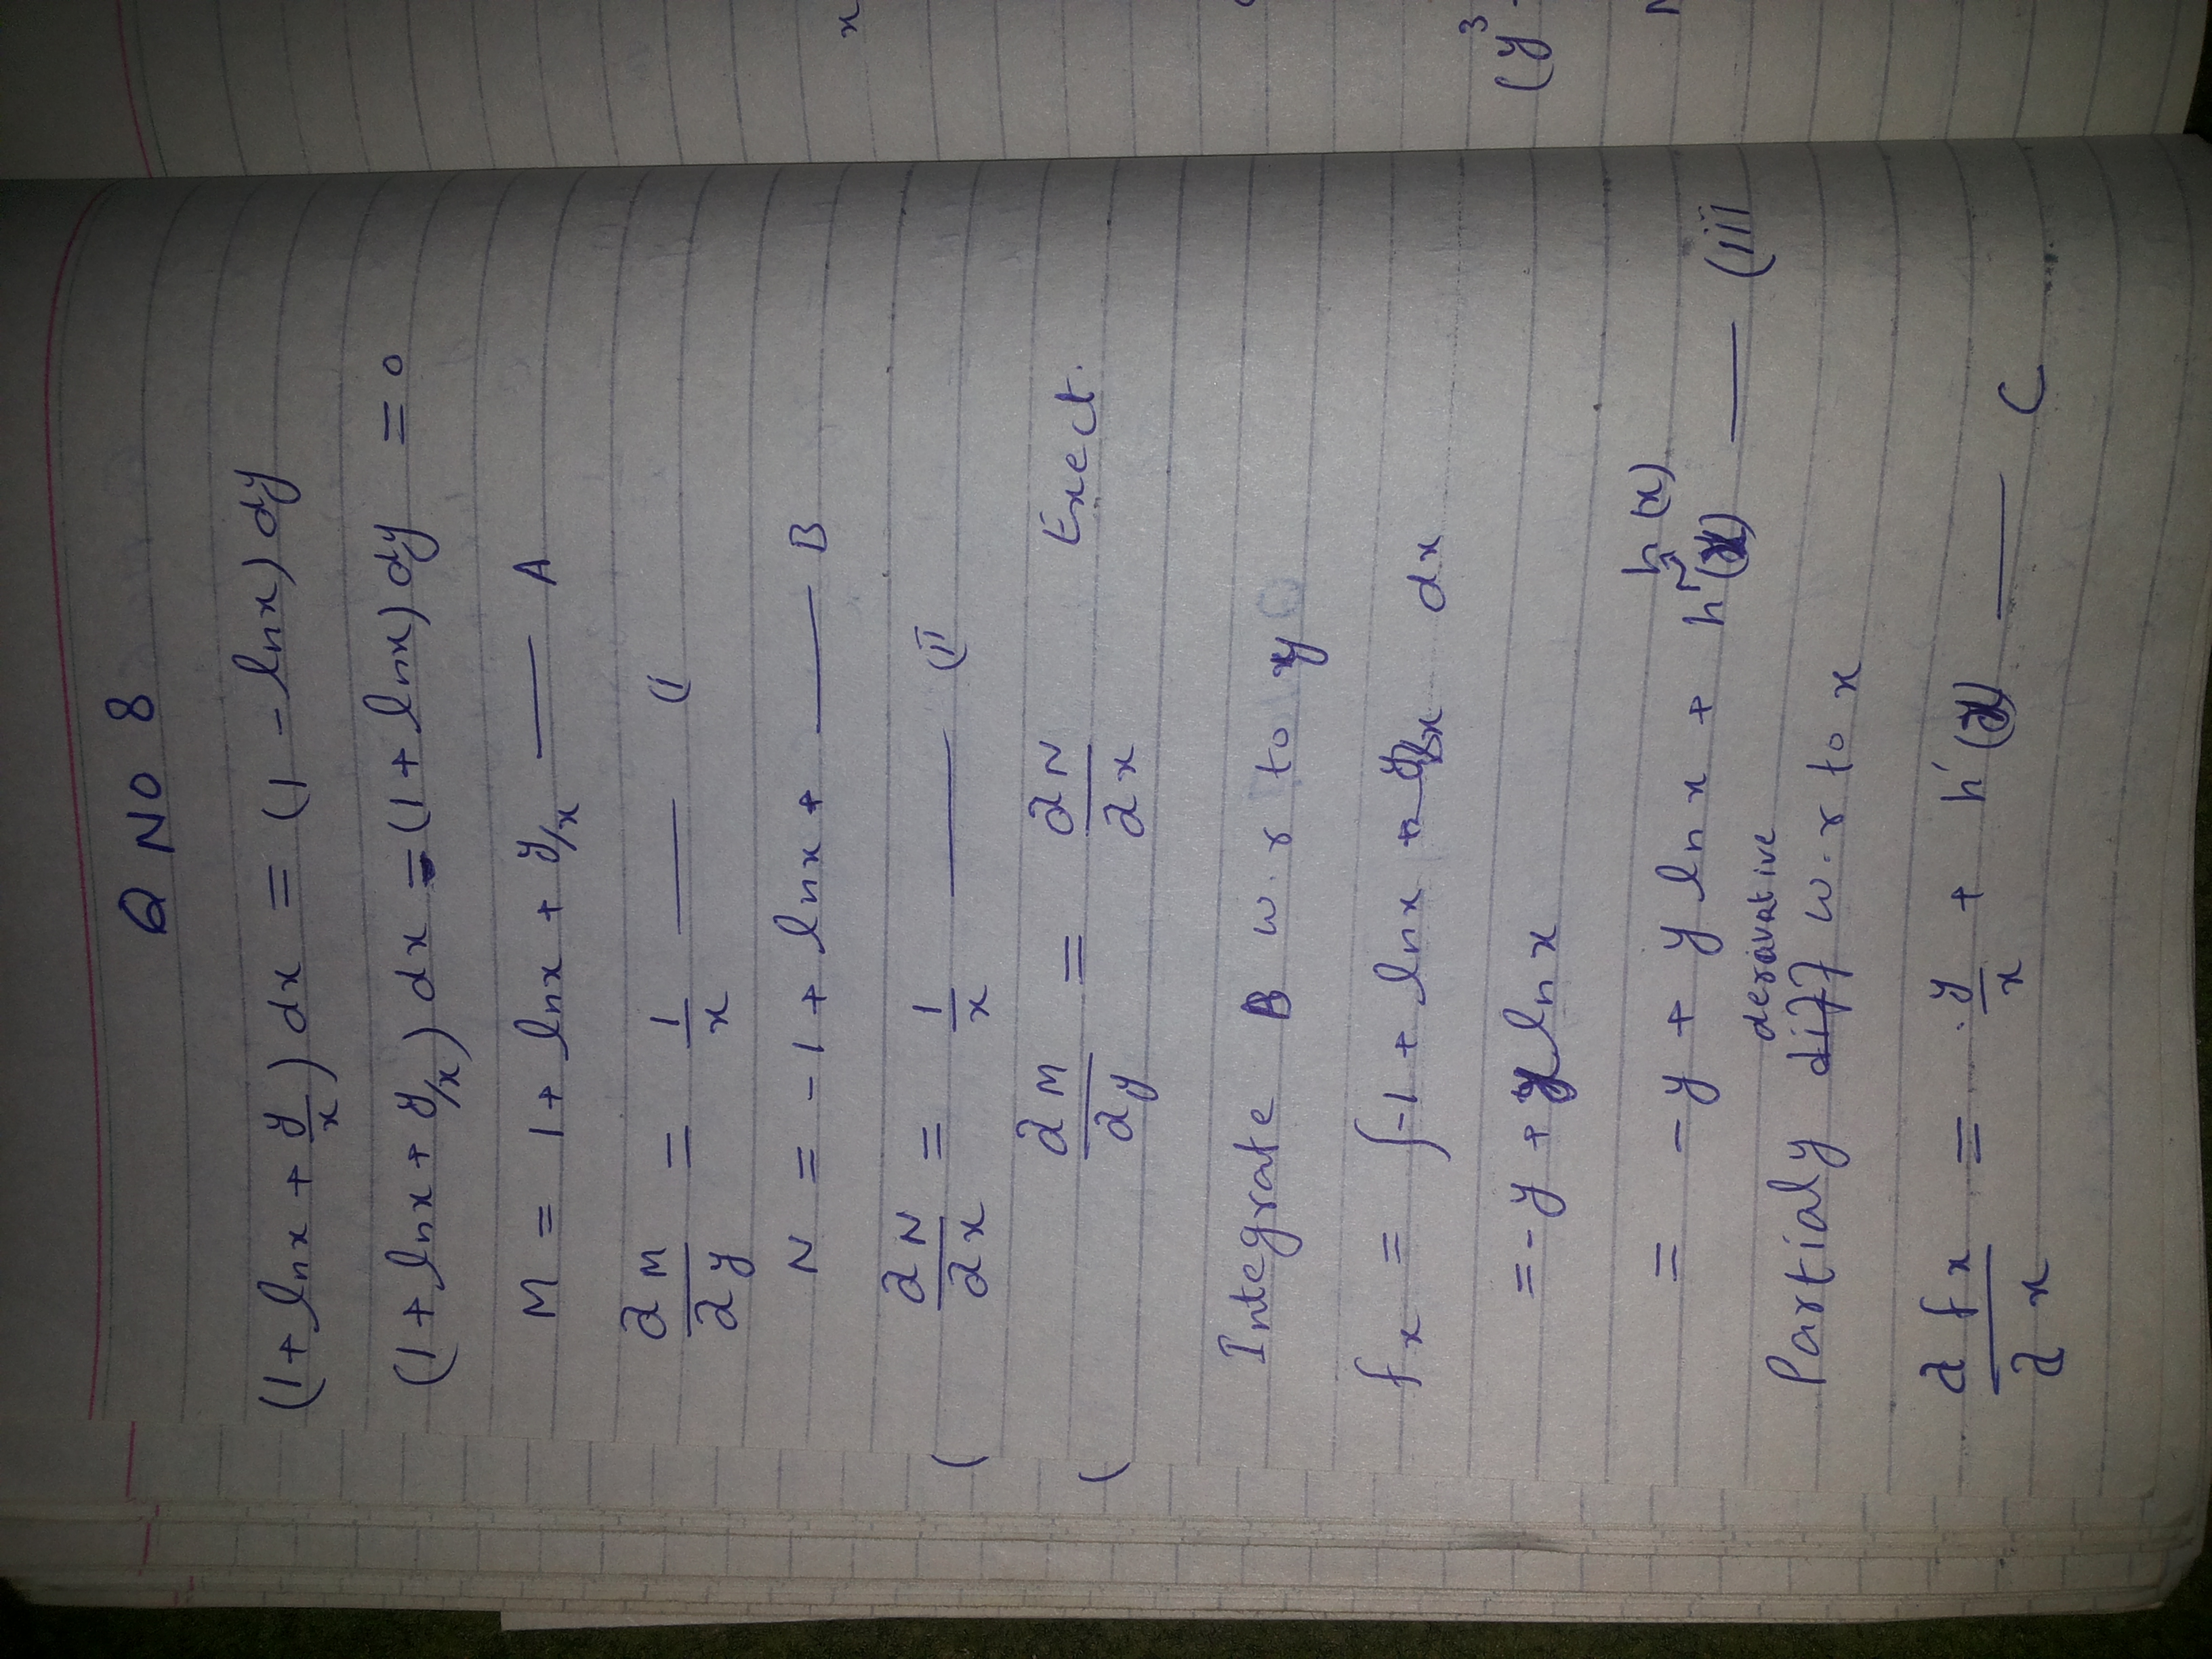 Q NO 8
(1 + lnx + y/x) dx = (1 - lnx) dy
(1 + lnx + y/x) dx - (1 + lnx) dy = 0
M = 1 + lnx + y/x — A
∂M/∂y = 1/x — (i
N = -1 + lnx + — B
( ∂N/∂x = 1/x — (ii
( ∂M/∂y = ∂N/∂x Exect.
Integrate B w.r to y
fx = ∫-1 + lnx dx
= -y + y lnx
h(x)
= -y + y lnx + h'(x) — (iii
derivative
Partialy diff w.r to x
∂fx/∂x = y/x + h'(x) — C
x
3
(y